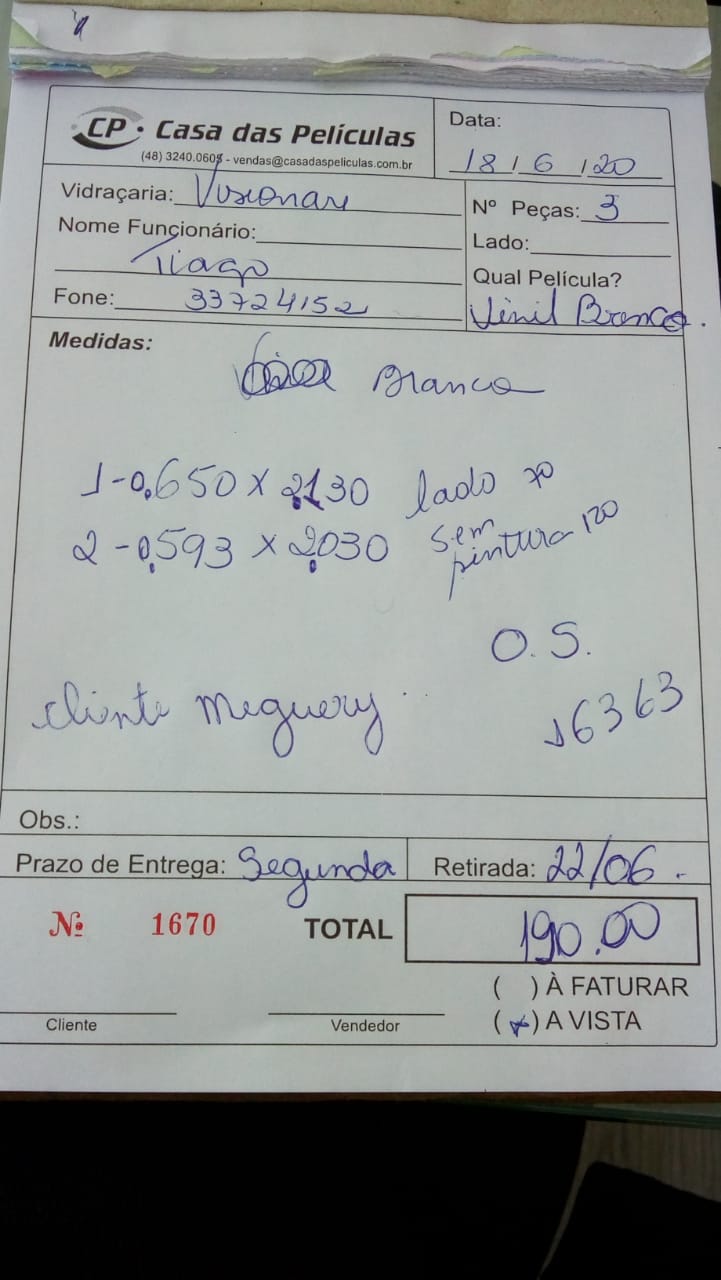 CP · Casa das Películas
(48) 3240.0605 - vendas@casadaspeliculas.com.br
Data:
18/6/20
Vidraçaria: Visionare
Nº Peças: 3
Nome Funcionário:
Tiago
Lado:
Fone: 33724152
Qual Película?
Vinil Branco.
Medidas:
Branco
1-0,650 x 2,130 lado 70
2-0,593 x 2,030 sem
pintura 120
O.S.
16363
cliente Meguery
Obs.:
Prazo de Entrega: Segunda
Retirada: 22/06.
Nº 1670
TOTAL 190.00
( ) À FATURAR
(x) A VISTA
Cliente
Vendedor